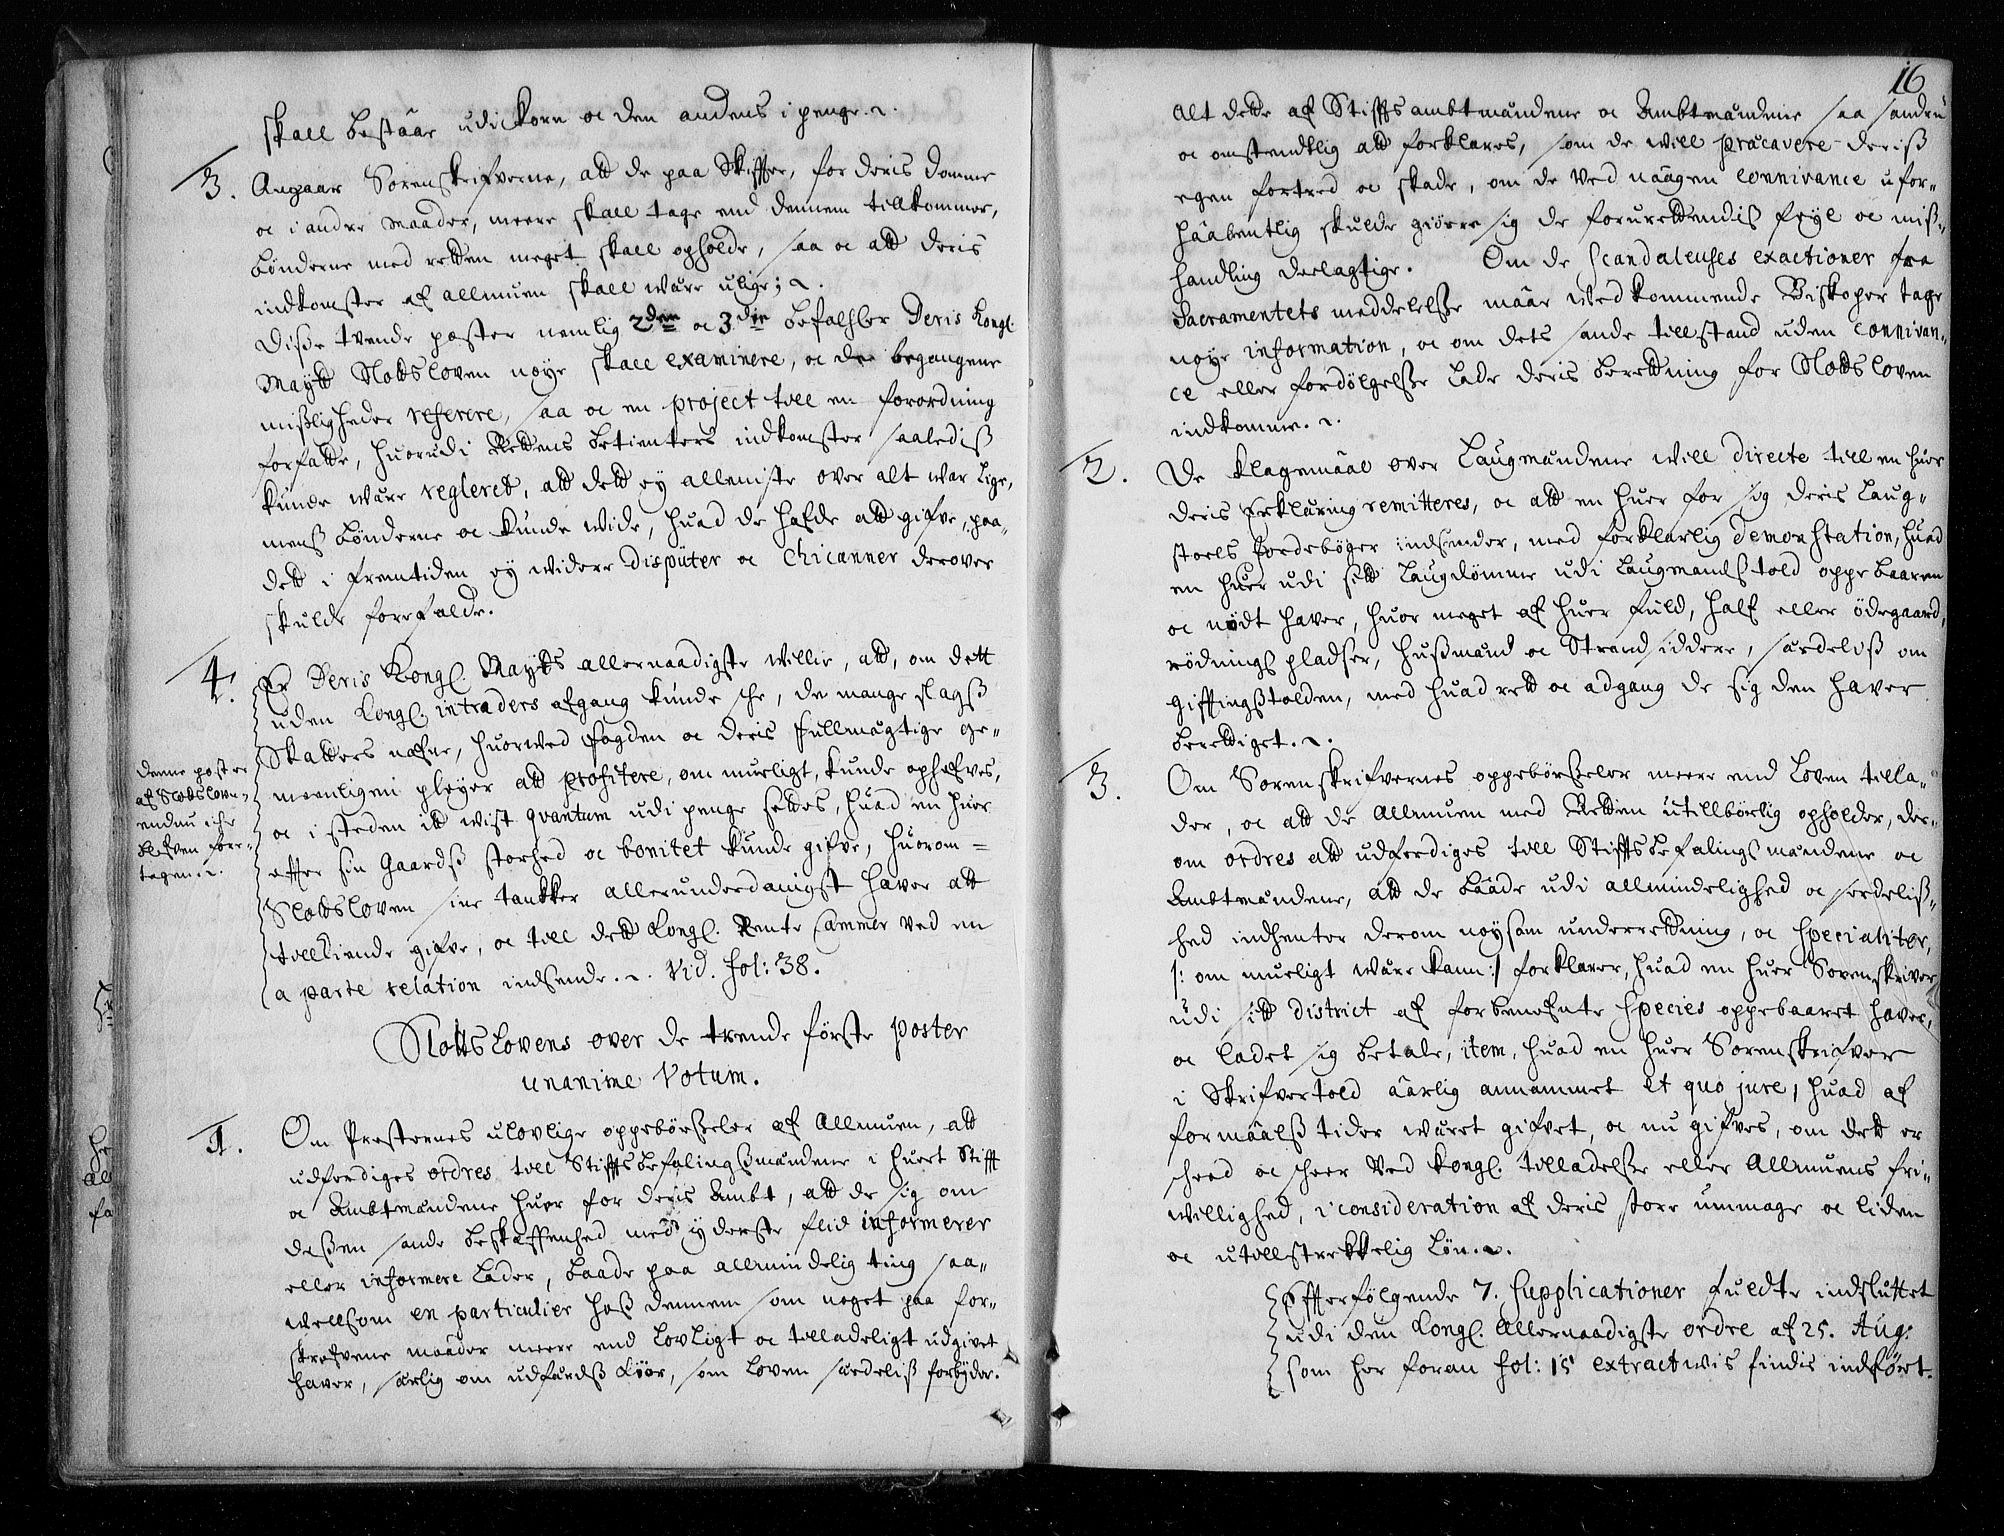 skall bestaar udi Korn oc den andens i penge. ~.
3. Angaar Sorenskrifverne, att de paa Skiffter, for deris domme
oc i andre maader, meere skall tage end dennem tillkommer,
bønderne med retten meget skall opholde, saa oc att deris
indkomster af allmuen skall wære ulige; ~.
Disse tvende poster nemlig 2den oc 3die befahler Deris Kongl.
Maytt Slottsloven nøye skall examinere, oc de begangene
misligheder referere, saa oc en project till en forordning
forfatte, huorudi Rettens betienters indkomster saalediss
kunde wære regleret, att dett ey alleniste over alt war lige,
menss bønderne oc kunde wide, huad de hafde att gifve, paa
dett i fremtiden ey widere disputer oc Chicanner derover
skulde forefalde.
4. Er Deris Kongl. Maytts allernaadigste willie, att, om dett
uden Kongl. intraders afgang kunde ske, de mange slagss
Skatters nafne, huorved fogden oc deris fullmægtige ge-
meenligen pleyer att profitere, om mueligt, kunde ophæfves,
oc i steden itt wist qvantum udi penge settes, huad en huer
efter sin Gaardss storhed oc bonitet kunde gifve, huorom
Slottsloven sine tankker allerunderdanigst hafver att
tilkiende gifve, oc till dett Kongl. Rente Cammer ved en
a parte relation indsende. ~. Vid. fol: 38.
denne post er
af Slottslov-
en endnu iche
blefven fore-
tagen. ~.
Slottslovens over de trende første poster
unanime Votum.
1. Om Presternes ulovlige oppebørsseler af Allmuen, att
udferdiges ordres till Stifftsbefalingssmændene i huert Stifft
oc Ambtmændene huer for deris Ambt, att de sig om
dessen sande beskaffenhed med yderste fliid informerer
eller informere lader, baade paa allmindelig ting saa-
wellsom en particulier hoss dennem som noget paa for-
skrefvene maader meere end Lovligt oc tilladeligt udgivet
hafver, særlig om udfærdss Kiør, som Loven særdeliss forbyder.
16
alt dette af Stifftsambtmændene oc Ambtmændene saa sandru
oc omstendtlig att forklares, som de will præcavere deriss
egen fortred oc skade, om de ved naagen connivance ufor-
haabentlig skulde giøre sig de forurettendis feyl oc miss-
handling deelagtige. Om de Scandaleuses exactioner fra
Sacramentets meddelelsse maae wedkommende Biskoper tage
nøye information, oc om dets sande tillstand uden connivan-
ce eller fordølgelsse lade deris berettning for Slottsloven
indkomme. ~.
2. De klagemaal over Laugmændene will directe till en huer
deris Erklæring remitteres, oc att en huer for sig deris Laug-
stoels Jordebøger indsender, med forklarlig demonstation, huad
en huer udi sitt Laugdømme udi Laugmandsstold oppebaaren
oc nødt haver, huor meget af huer fuld, half eller ødegaard,
rødnings pladser, hussmænd oc Strandsiddere, særdeliss om
Giftingsstolden, med huad rett oc adgang de sig den haver
berettiget. ~.
3. Om Sorenskrifvernes oppebørsseler meere end Loven tilla-
der, oc att de Allmuen med Retten utillbørlig opholder, der-
om ordres att udferdiges till Stifftsbefalingsmændene oc
Ambtmændene, att de baade udi allmindelighed oc særdeliss-
hed indhenter derom nøysom underrettning, oc specialiter,
/: om mueligt være kann :/ forklarer, huad en huer Sorenskriver
udi sitt district af forbenefnte Species oppebaaret haver,
oc ladet sig betale, item, huad en huer Sorenskrifver
i Skrifvertold aarlig annammet et quo jure, huad af
formaalss tider wæret gifvet, oc nu gifves, om dett er
skeed oc skeer ved Kongl. tilladelsse eller Allmuens fri-
willighed, i consideration af deris store ummage oc liden
oc utillstrekkelig løn. ~.
Efterfølgende 7. Supplicationer fuldte indsluttet
udi den Kongl. Allernaadigste ordre af 25. Aug:
som her foran fol: 15 extractwis findis indført.